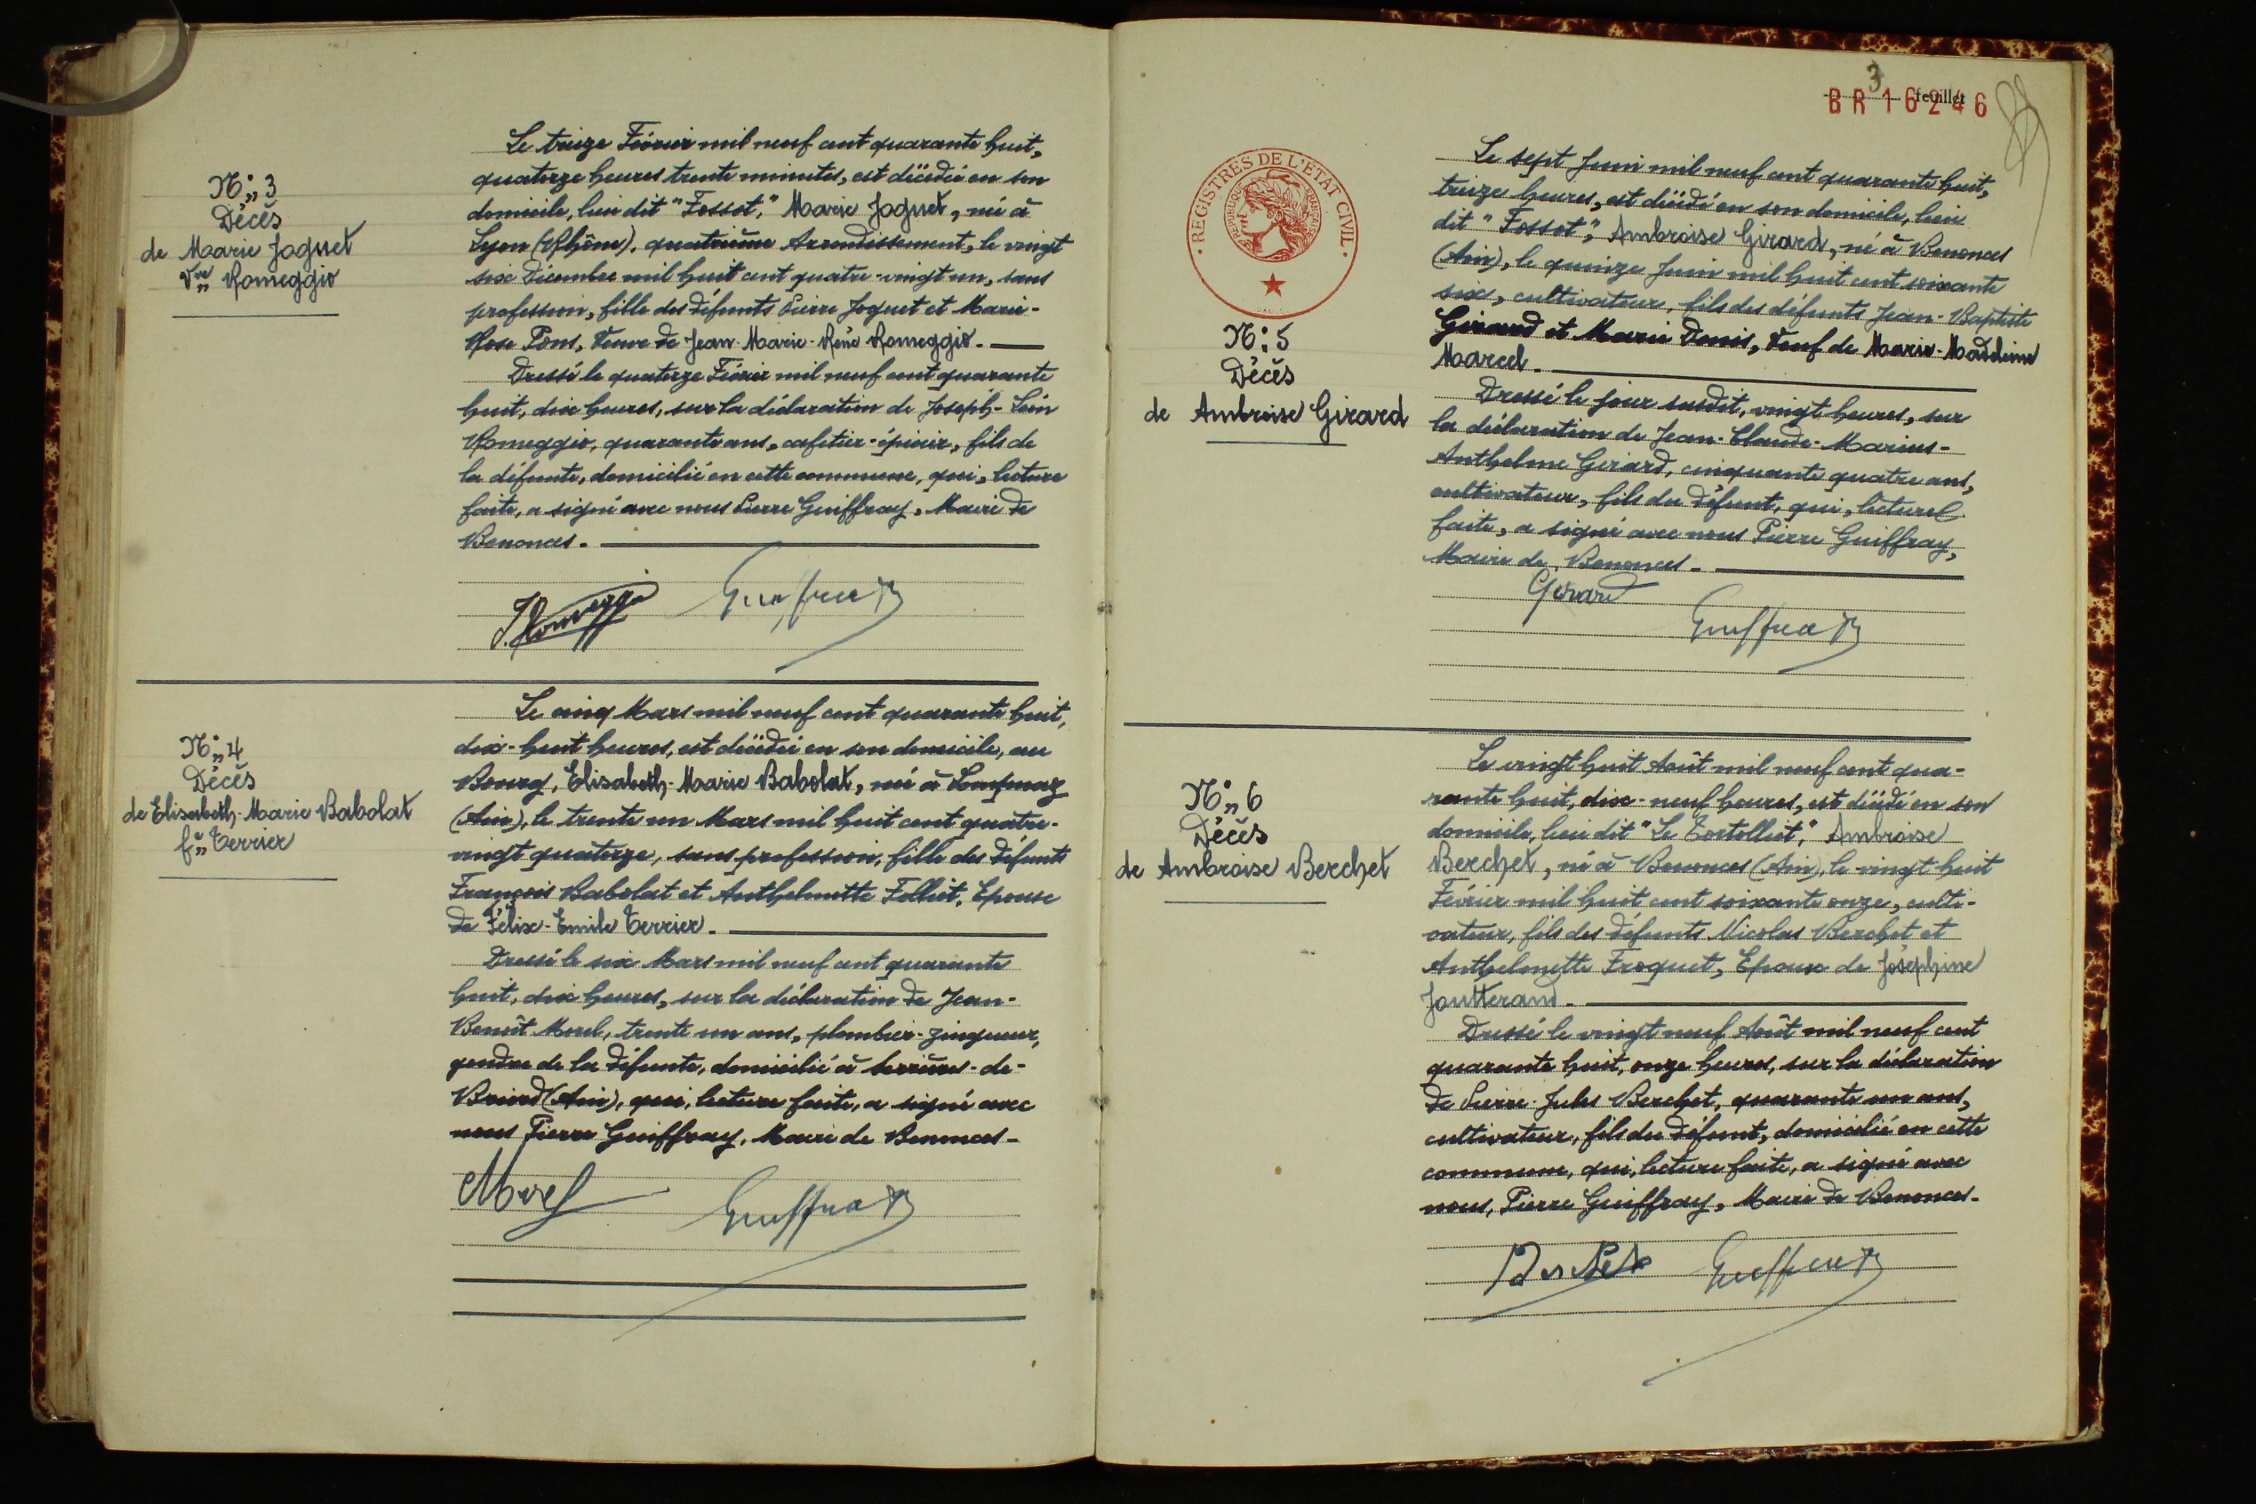 N° 3
Décès
de Marie Joguet
Vve Romeggio
Le treize Février mil neuf cent quarante huit,
quatorze heures trente minutes, est décédée en son
domicile, lieu dit "Fossot", Marie Joguet, née à
Lyon (Rhône), quatrième Arrondissement, le vingt
six Décembre mil huit cent quatre-vingt un, sans
profession, fille des défunts Pierre Joguet et Marie-
Rose Pons, Veuve de Jean-Marie-René Romeggio.
Dressé le quatorze Février mil neuf cent quarante
huit, dix heures, sur la déclaration de Joseph-Léon
Romeggio, quarante ans, cafetier-épicier, fils de
la défunte, domicilié en cette commune, qui, lecture
faite, a signé avec nous Pierre Guiffray, Maire de
Benonces.
J. Romeggio Guiffray
N° 4
Décès
de Elisabeth-Marie Babolat
fe Terrier
Le cinq Mars mil neuf cent quarante huit,
dix-huit heures, est décédée en son domicile, au
Bourg, Elisabeth-Marie Babolat, née à Lompnaz
(Ain), le trente un Mars mil huit cent quatre-
vingt quatorze, sans profession, fille des défunts
François Babolat et Anthelmette Folliet, Epouse
de Félix-Emile Terrier.
Dressé le six Mars mil neuf cent quarante
huit, dix heures, sur la déclaration de Jean-
Benoît Morel, trente un ans, plombier-zingueur,
gendre de la défunte, domicilié à Serrières-de-
Briord (Ain), qui, lecture faite, a signé avec
nous Pierre Guiffray, Maire de Benonces.
Morel Guiffray
3
feuillet
BR16246
REGISTRES DE L'ETAT CIVIL
REPUBLIQUE FRANÇAISE
N° 5
Décès
de Ambroise Girard
Le sept Juin mil neuf cent quarante huit,
treize heures, est décédé en son domicile, lieu
dit "Fossot", Ambroise Girard, né à Benonces
(Ain), le quinze Juin mil huit cent soixante
six, cultivateur, fils des défunts Jean-Baptiste
Girard et Marie Denis, Veuf de Marie-Madeleine
Marcel.
Dressé le jour susdit, vingt heures, sur
la déclaration de Jean-Claude-Marius-
Anthelme Girard, cinquante quatre ans,
cultivateur, fils du défunt, qui, lecture
faite, a signé avec nous Pierre Guiffray,
Maire de Benonces.
Girard
Guiffray
N° 6
Décès
de Ambroise Berchet
Le vingt huit Août mil neuf cent qua-
rante huit, dix-neuf heures, est décédé en son
domicile, lieu dit "Le Tortolliet", Ambroise
Berchet, né à Benonces (Ain), le vingt huit
Février mil huit cent soixante onze, culti-
vateur, fils des défunts Nicolas Berchet et
Anthelmette Froquet, Epoux de Joséphine
Joutterand.
Dressé le vingt neuf Août mil neuf cent
quarante huit, onze heures, sur la déclaration
de Pierre-Jules Berchet, quarante un ans,
cultivateur, fils du défunt, domicilié en cette
commune, qui, lecture faite, a signé avec
nous, Pierre Guiffray, Maire de Benonces.
Berchet Guiffray